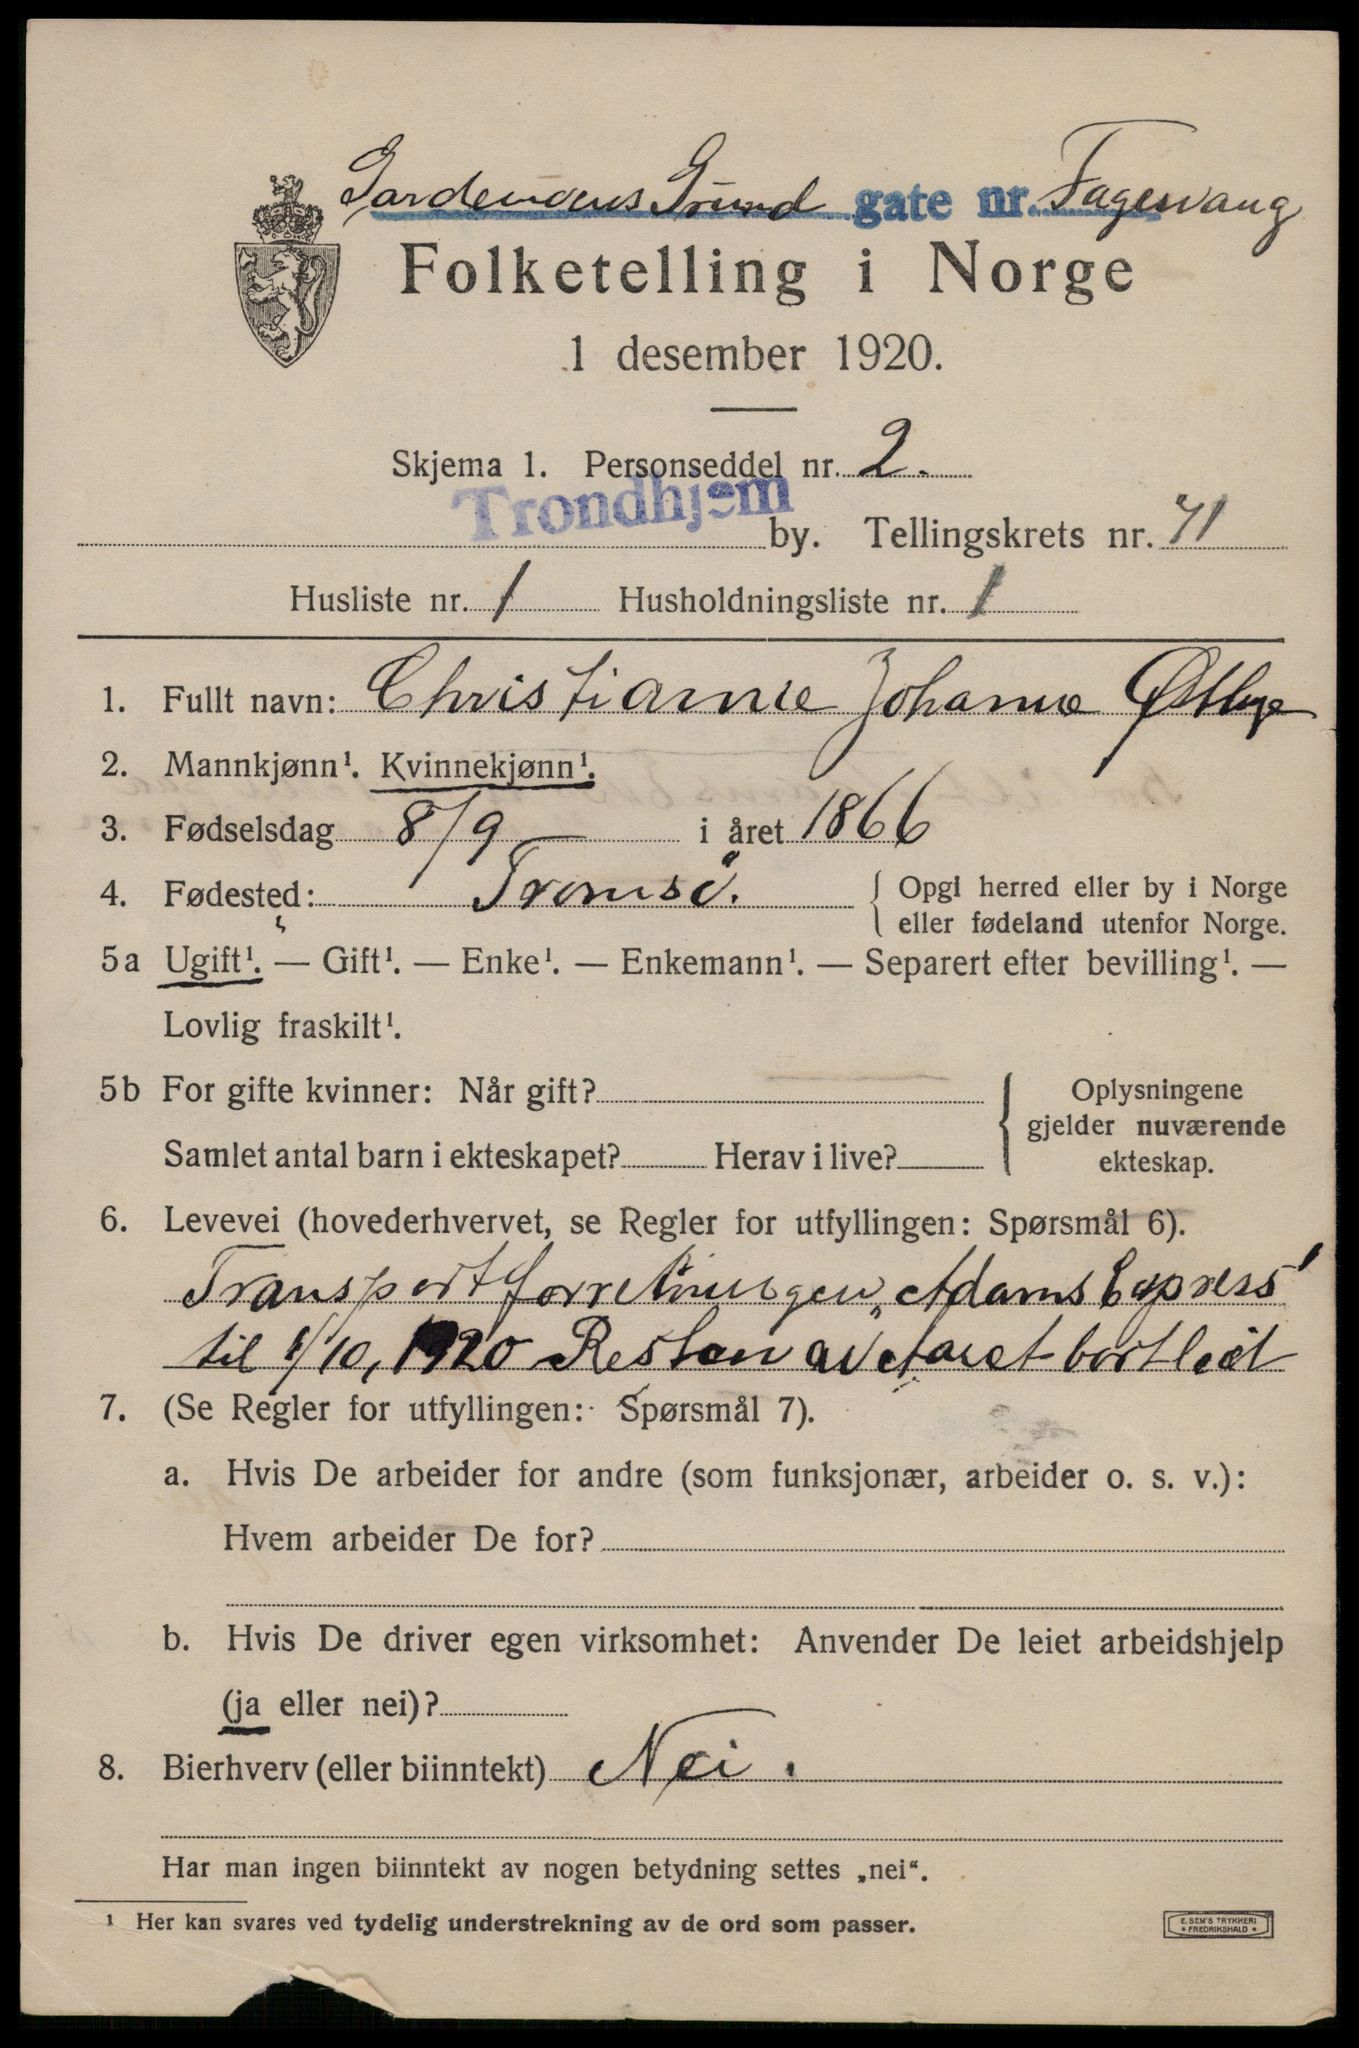 Gardemoens Grund gate nr. Fagervang
Folketelling i Norge
1 desember 1920.
Skjema 1. Personseddel nr. 2.
Trondhjem by. Tellingskrets nr. 71
Husliste nr. 1 Husholdningsliste nr. 1
1. Fullt navn: Christianne Johanne Østbye
2. Mannkjønn¹. Kvinnekjønn¹.
3. Fødselsdag 8/9 i året 1866
4. Fødested: Tromsö. { Opgi herred eller by i Norge
eller fødeland utenfor Norge.
5a Ugift¹. — Gift¹. — Enke¹. — Enkemann¹. — Separert efter bevilling¹. —
Lovlig fraskilt¹.
5b For gifte kvinner: Når gift? { Oplysningene
gjelder nuværende
ekteskap.
Samlet antal barn i ekteskapet? Herav i live?
6. Levevei (hovederhvervet, se Regler for utfyllingen: Spørsmål 6).
Transportforretningen „Adams Express"
til 1/10, 1920 Resten av aaret bortleiet
7. (Se Regler for utfyllingen: Spørsmål 7).
a. Hvis De arbeider for andre (som funksjonær, arbeider o. s. v.):
Hvem arbeider De for?
b. Hvis De driver egen virksomhet: Anvender De leiet arbeidshjelp
(ja eller nei)?
8. Bierhverv (eller biinntekt) Nei.
Har man ingen biinntekt av nogen betydning settes „nei“.
¹ Her kan svares ved tydelig understrekning av de ord som passer.
E. SEM'S TRYKKERI
* FREDRIKSHALD *